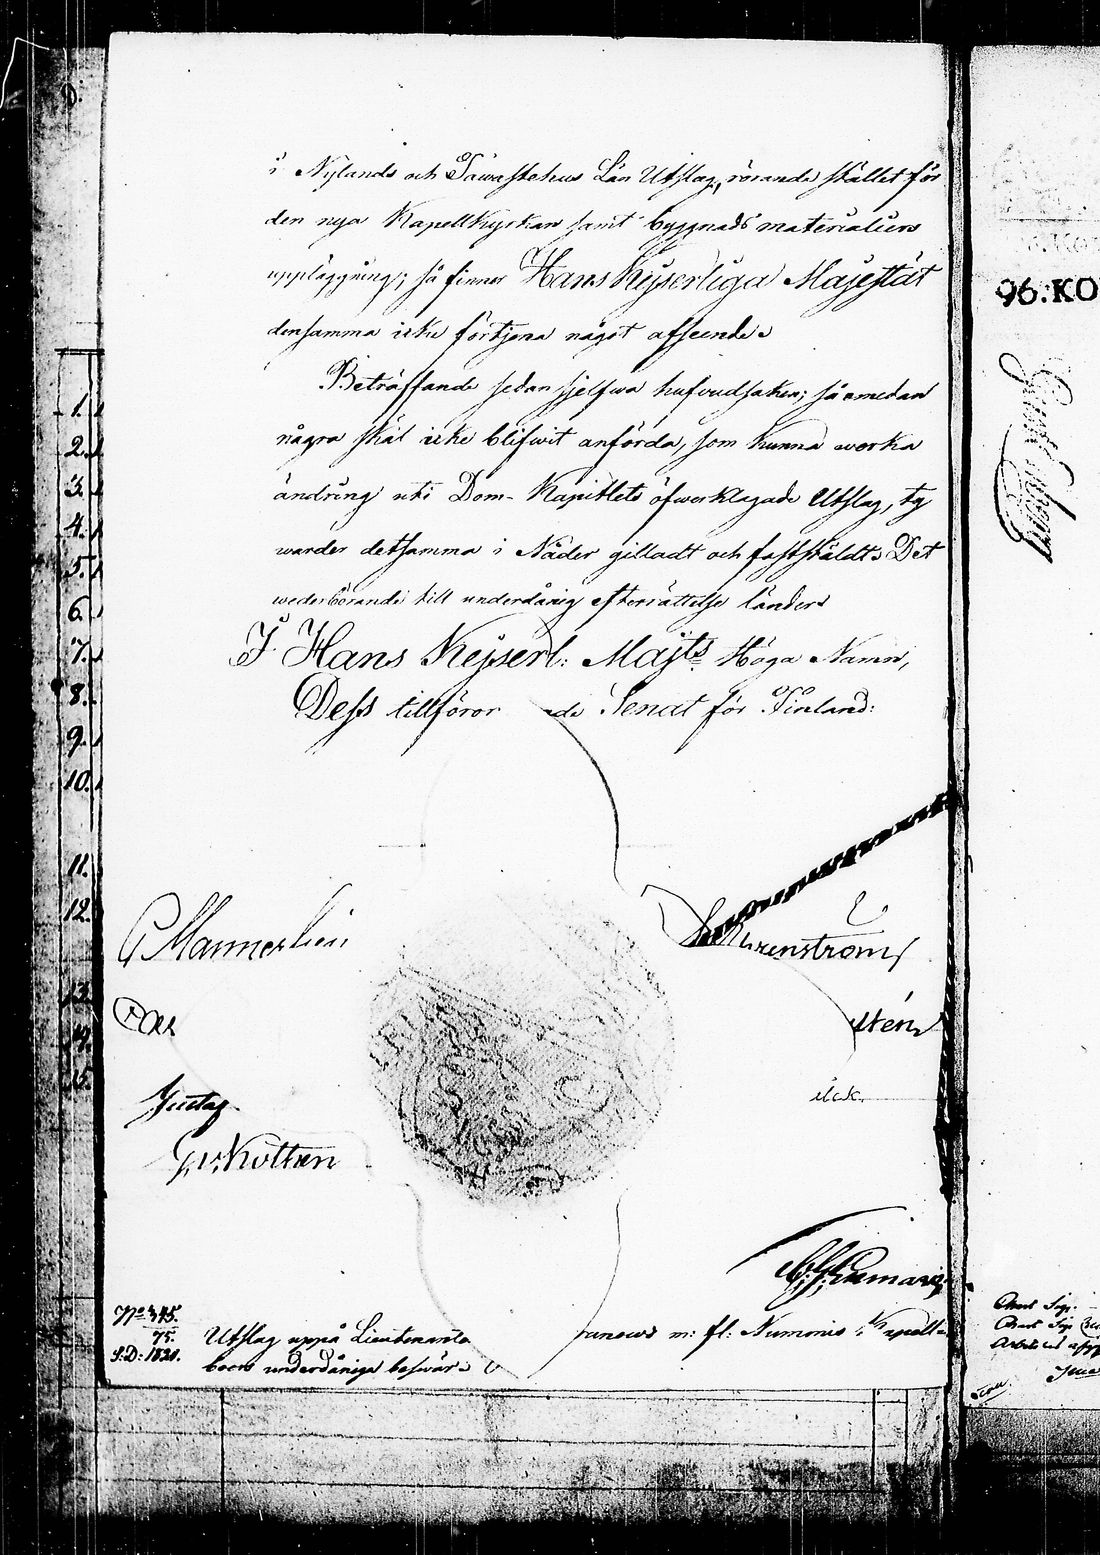 i Nylands och Tawastehus Län Utslag, rörande stället för
den nya Kapellkyrkan samt byggnads materialiers
uppläggning; så finner Hans Kejserliga Majestät
densamma icke förtjena något afseende.
Beträffande sedan sjelfwa hufvudsaken; så emedan
några skäl icke blifwit anförda, som kunna werka
ändring uti Dom-Kapitlets öfwerklagade Utslag, ty
warder detsamma i Nåder gilladt och fastställdt. Det
wederbörande till underdånig efterrättelse länder.
I Hans Kejserl: Majts Höga Namn,
Dess tillföror nde Senat för Finland:
C Mannerheim
Ehrenström
stén
Gustaf
ück.
G. v. Kothen
No 345.
75.
S:D: 1820.
Utslag uppå Lieutenante
runows m: fl: Numonis Kapell-
boers underdåniga beswär.
D:
1.
2.
3.
4.
5.
6.
7.
8.
9.
10.
11.
12.
13.
14.
15.
96.KO